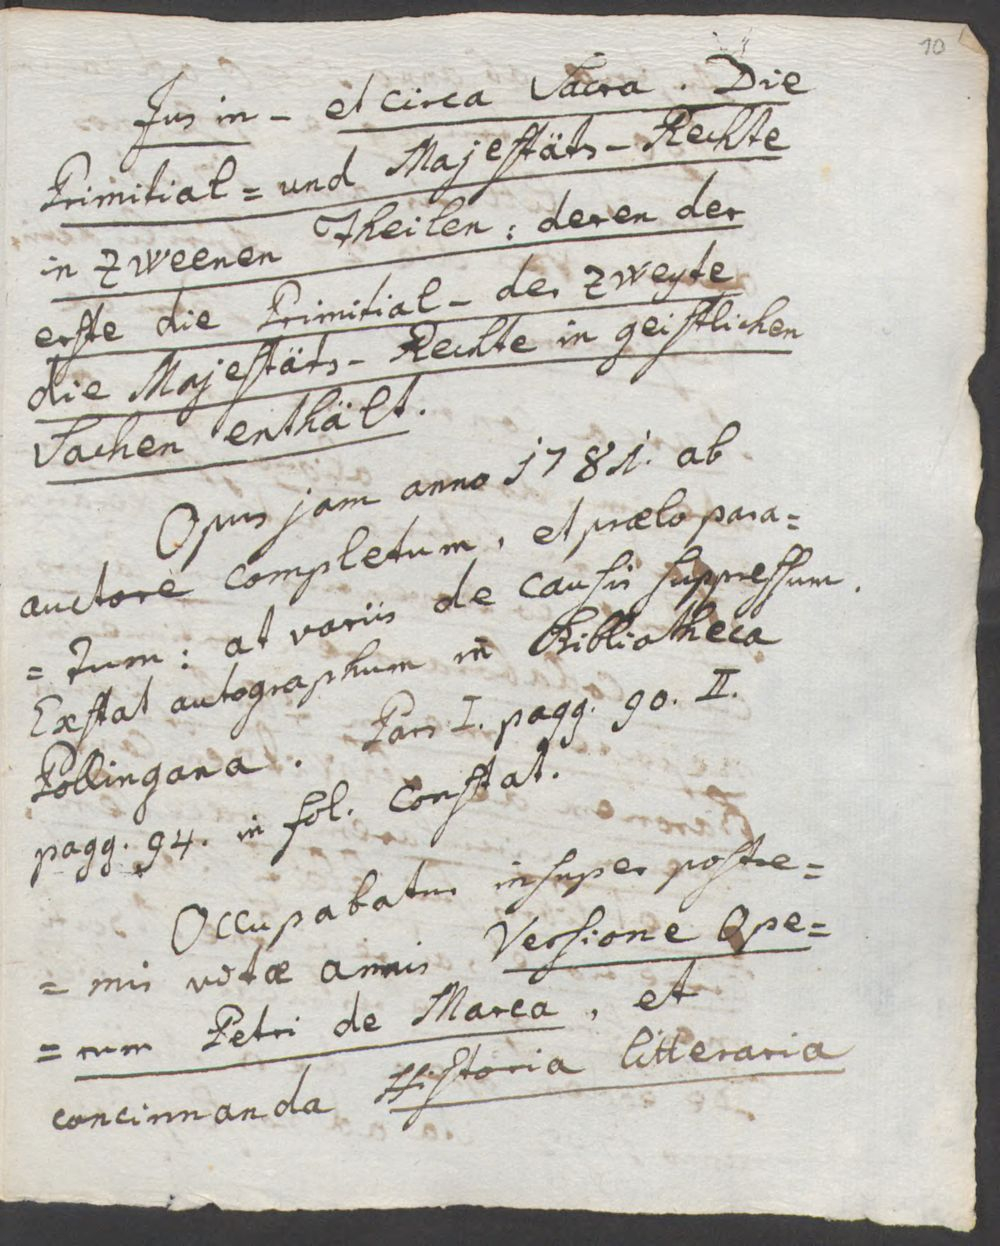 10
Jus in - et circa Sacra. Die
Primitial = und Majestäts - Rechte
in zweenen Theilen: deren der
erste die Primitial - der zweyte
die Majestäts - Rechte in geistlichen
Sachen enthält.
Opus jam anno 1781. ab
auctore completum, et prælo para=
= tum: at variis de causis suppressum.
Exstat autographum in Bibliotheca
Pollingana. Pars I. pagg. 90. II.
pagg. 94. in fol. constat.
Occupabatur insuper postre=
= mis vitæ annis Versione Ope=
= rum Petri de Marca, et
concinnanda Historia litteraria